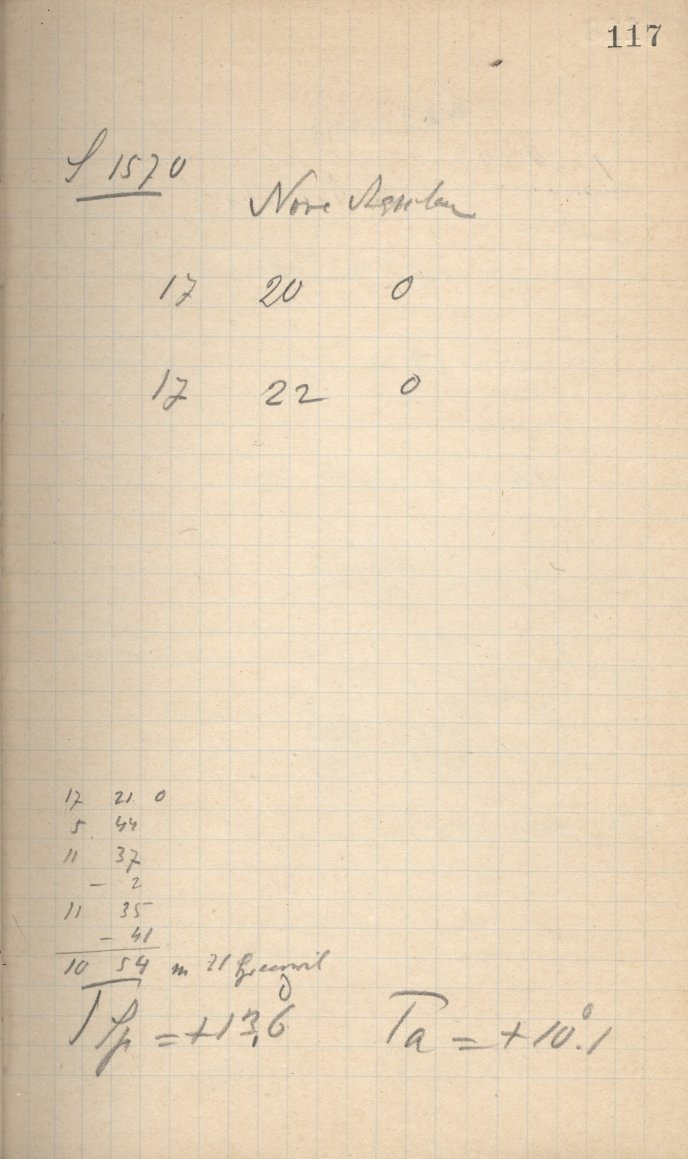 117
S 1570
Nova Aquilae
17 20 0
17 22 0
17 21 0
5 44
11 37
- 2
11 35
- 41
10 54 m Z1 Greenwich
T Sp = +13,6° Ta = +10°.1